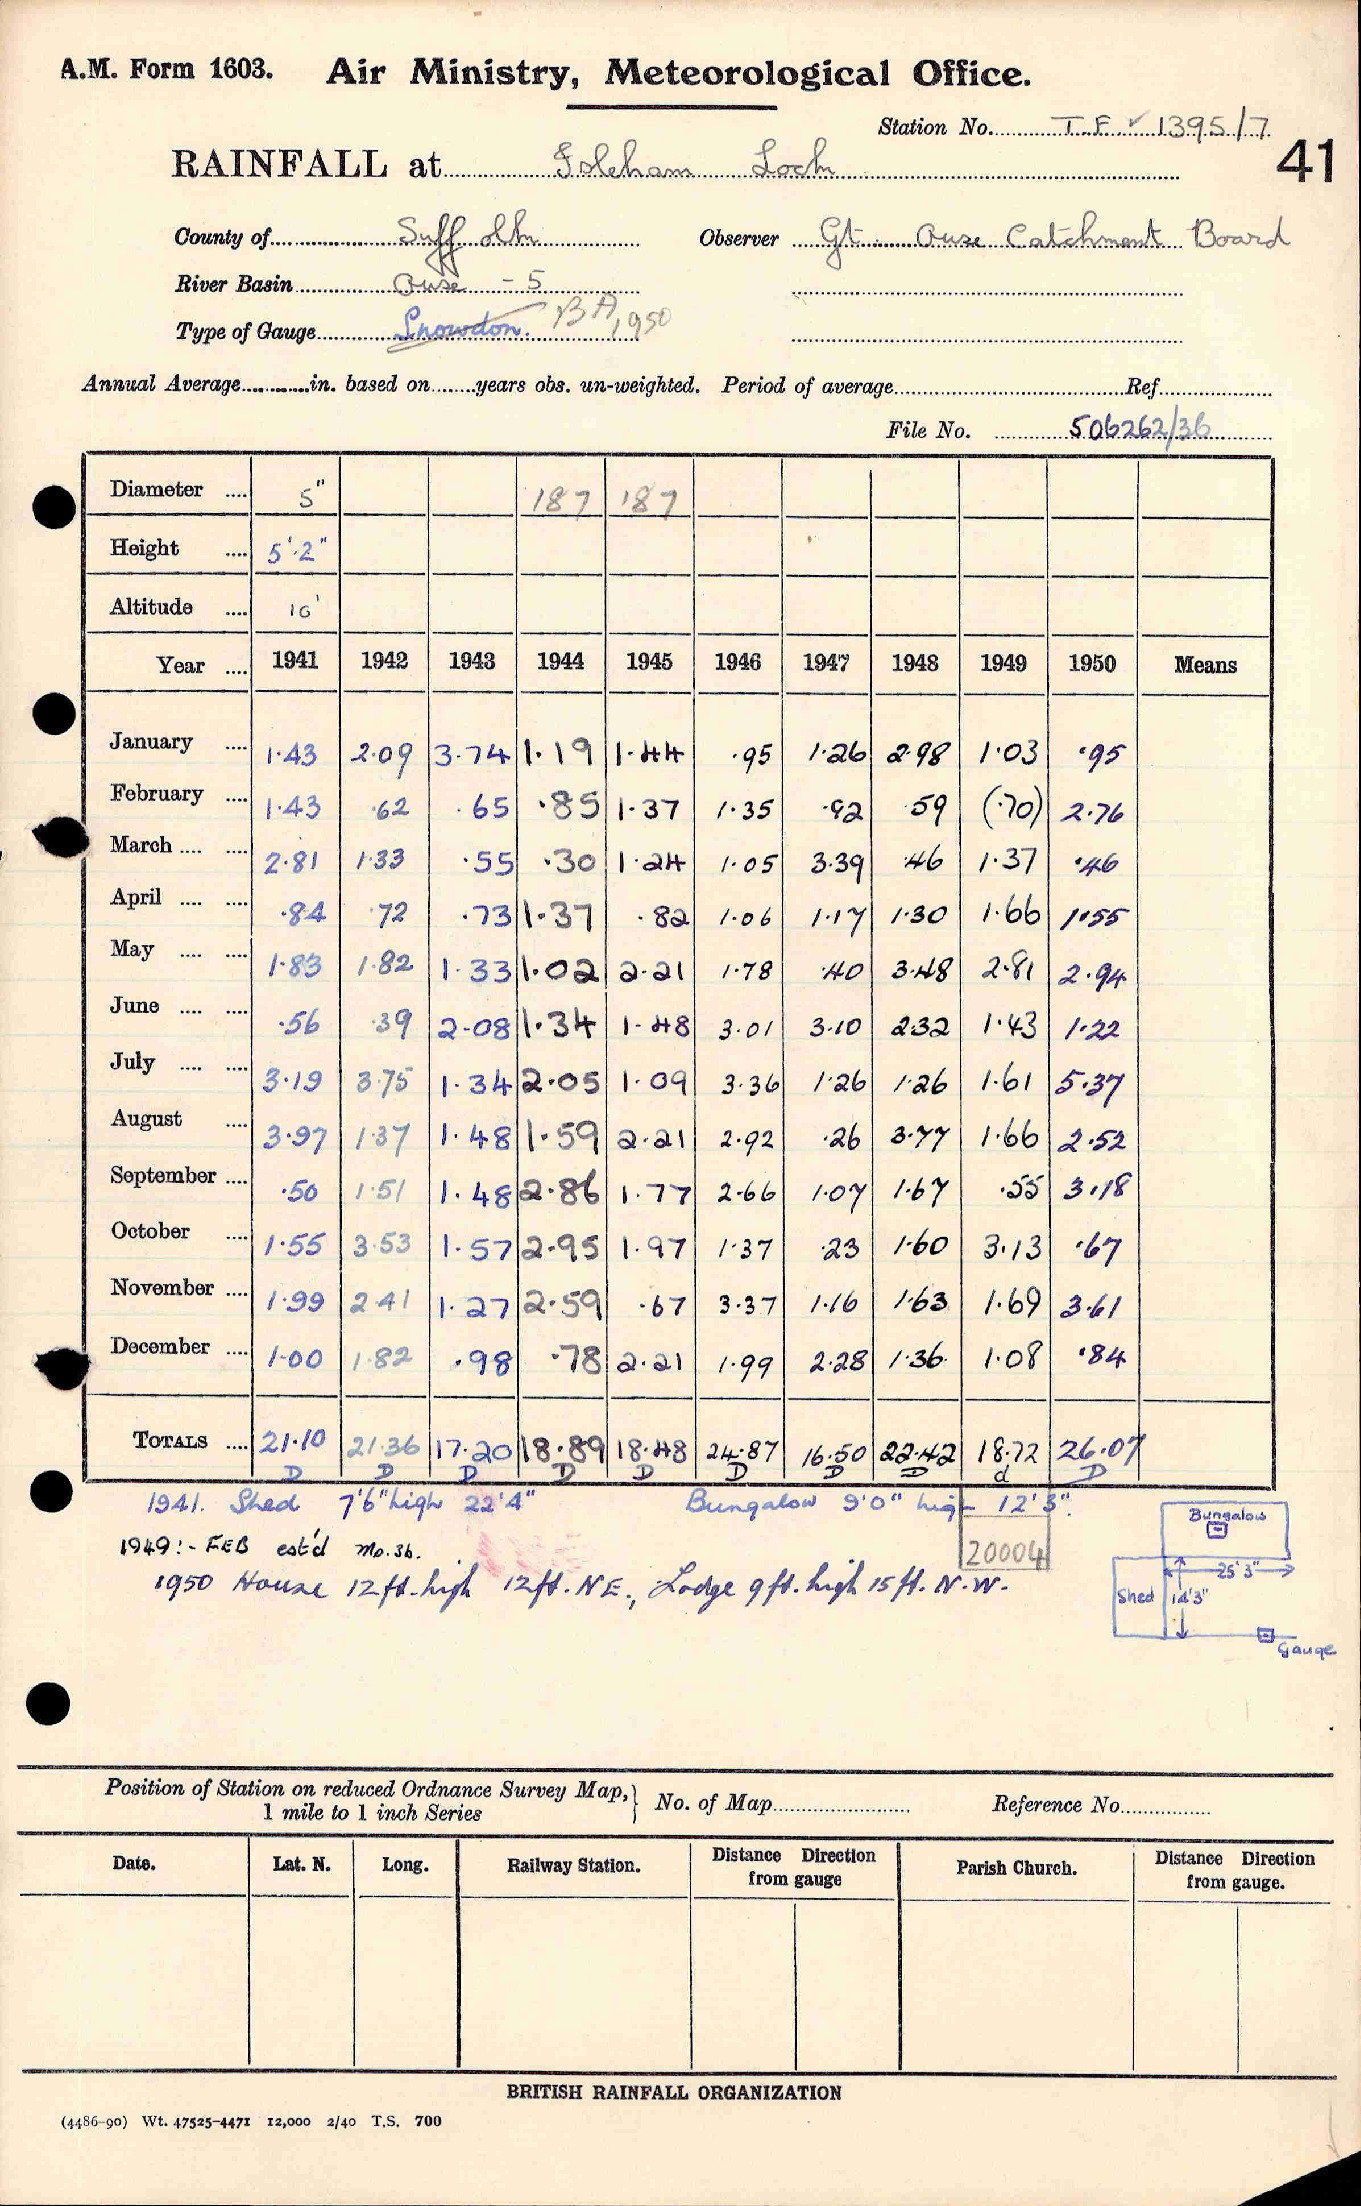 A.M. Form 1603. Air Ministry, Meteorological Office.
Station No. T.F. ✓ 1395/7
41
RAINFALL at Isleham Lock
County of Suffolk Observer Gt. Ouse Catchment Board
River Basin Ouse - 5
Type of Gauge Snowdon. BA, 1950
Annual Average in. based on years obs. un-weighted. Period of average Ref.
File No. 506262/36
Diameter .... 5" 187 187
Height .... 5'.2"
Altitude .... 10'
Year .... 1941 1942 1943 1944 1945 1946 1947 1948 1949 1950 Means
January .... 1.43 2.09 3.74 1.19 1.44 .95 1.26 2.98 1.03 .95
February .... 1.43 .62 .65 .85 1.37 1.35 .92 .59 (.70) 2.76
March .... .... 2.81 1.33 .55 .30 1.24 1.05 3.39 .46 1.37 .46
April .... .... .84 .72 .73 1.37 .82 1.06 1.17 1.30 1.66 1.55
May .... .... 1.83 1.82 1.33 1.02 2.21 1.78 .40 3.48 2.81 2.94
June .... .... .56 .39 2.08 1.34 1.48 3.01 3.10 2.32 1.43 1.22
July .... .... 3.19 3.75 1.34 2.05 1.09 3.36 1.26 1.26 1.61 5.37
August .... 3.97 1.37 1.48 1.59 2.21 2.92 .26 3.77 1.66 2.52
September .... .50 1.51 1.48 2.86 1.77 2.66 1.07 1.67 .55 3.18
October .... 1.55 3.53 1.57 2.95 1.97 1.37 .23 1.60 3.13 .67
November .... 1.99 2.41 1.27 2.59 .67 3.37 1.16 1.63 1.69 3.61
December .... 1.00 1.82 .98 .78 2.21 1.99 2.28 1.36 1.08 .84
TOTALS .... 21.10 21.36 17.20 18.89 18.48 24.87 16.50 22.42 18.72 26.07
D D D D D D D D d D
1941. Shed 7'6" high 22'4" Bungalow 9'0" high 12'3".
1949:- FEB est'd Mo.3b.
20004
1950 House 12ft. high 12ft. N.E., Lodge 9ft. high 15ft. N.W.
Bungalow
25'3"
Shed 14'3"
Gauge
Position of Station on reduced Ordnance Survey Map, 1 mile to 1 inch Series No. of Map Reference No.
Date. Lat. N. Long. Railway Station. Distance Direction from gauge Parish Church. Distance Direction from gauge.
BRITISH RAINFALL ORGANIZATION
(4486-90) Wt. 47525-4471 12,000 2/40 T.S. 700